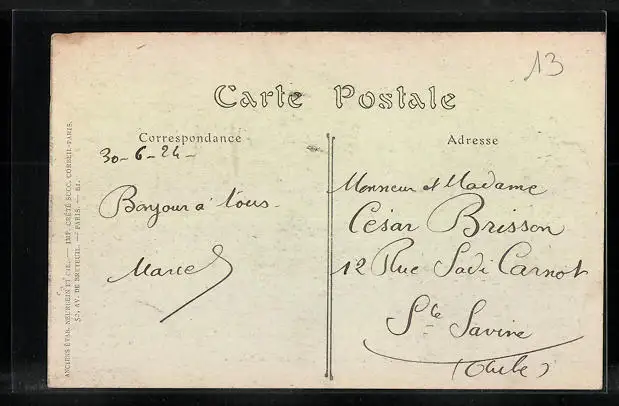 13
Carte Postale
Correspondance
30-6-24-
Bonjour à tous.
Marcel
Adresse
Monsieur et Madame
César Brisson
12 Rue Sadi Carnot
Ste Savine
(Aube)
ANCIENS ÉTAB. NEURDEIN ET CIE. — IMP. CRÉTÉ SUCC. CORBEIL-PARIS.
52, AV. DE BRETEUIL. — PARIS. —